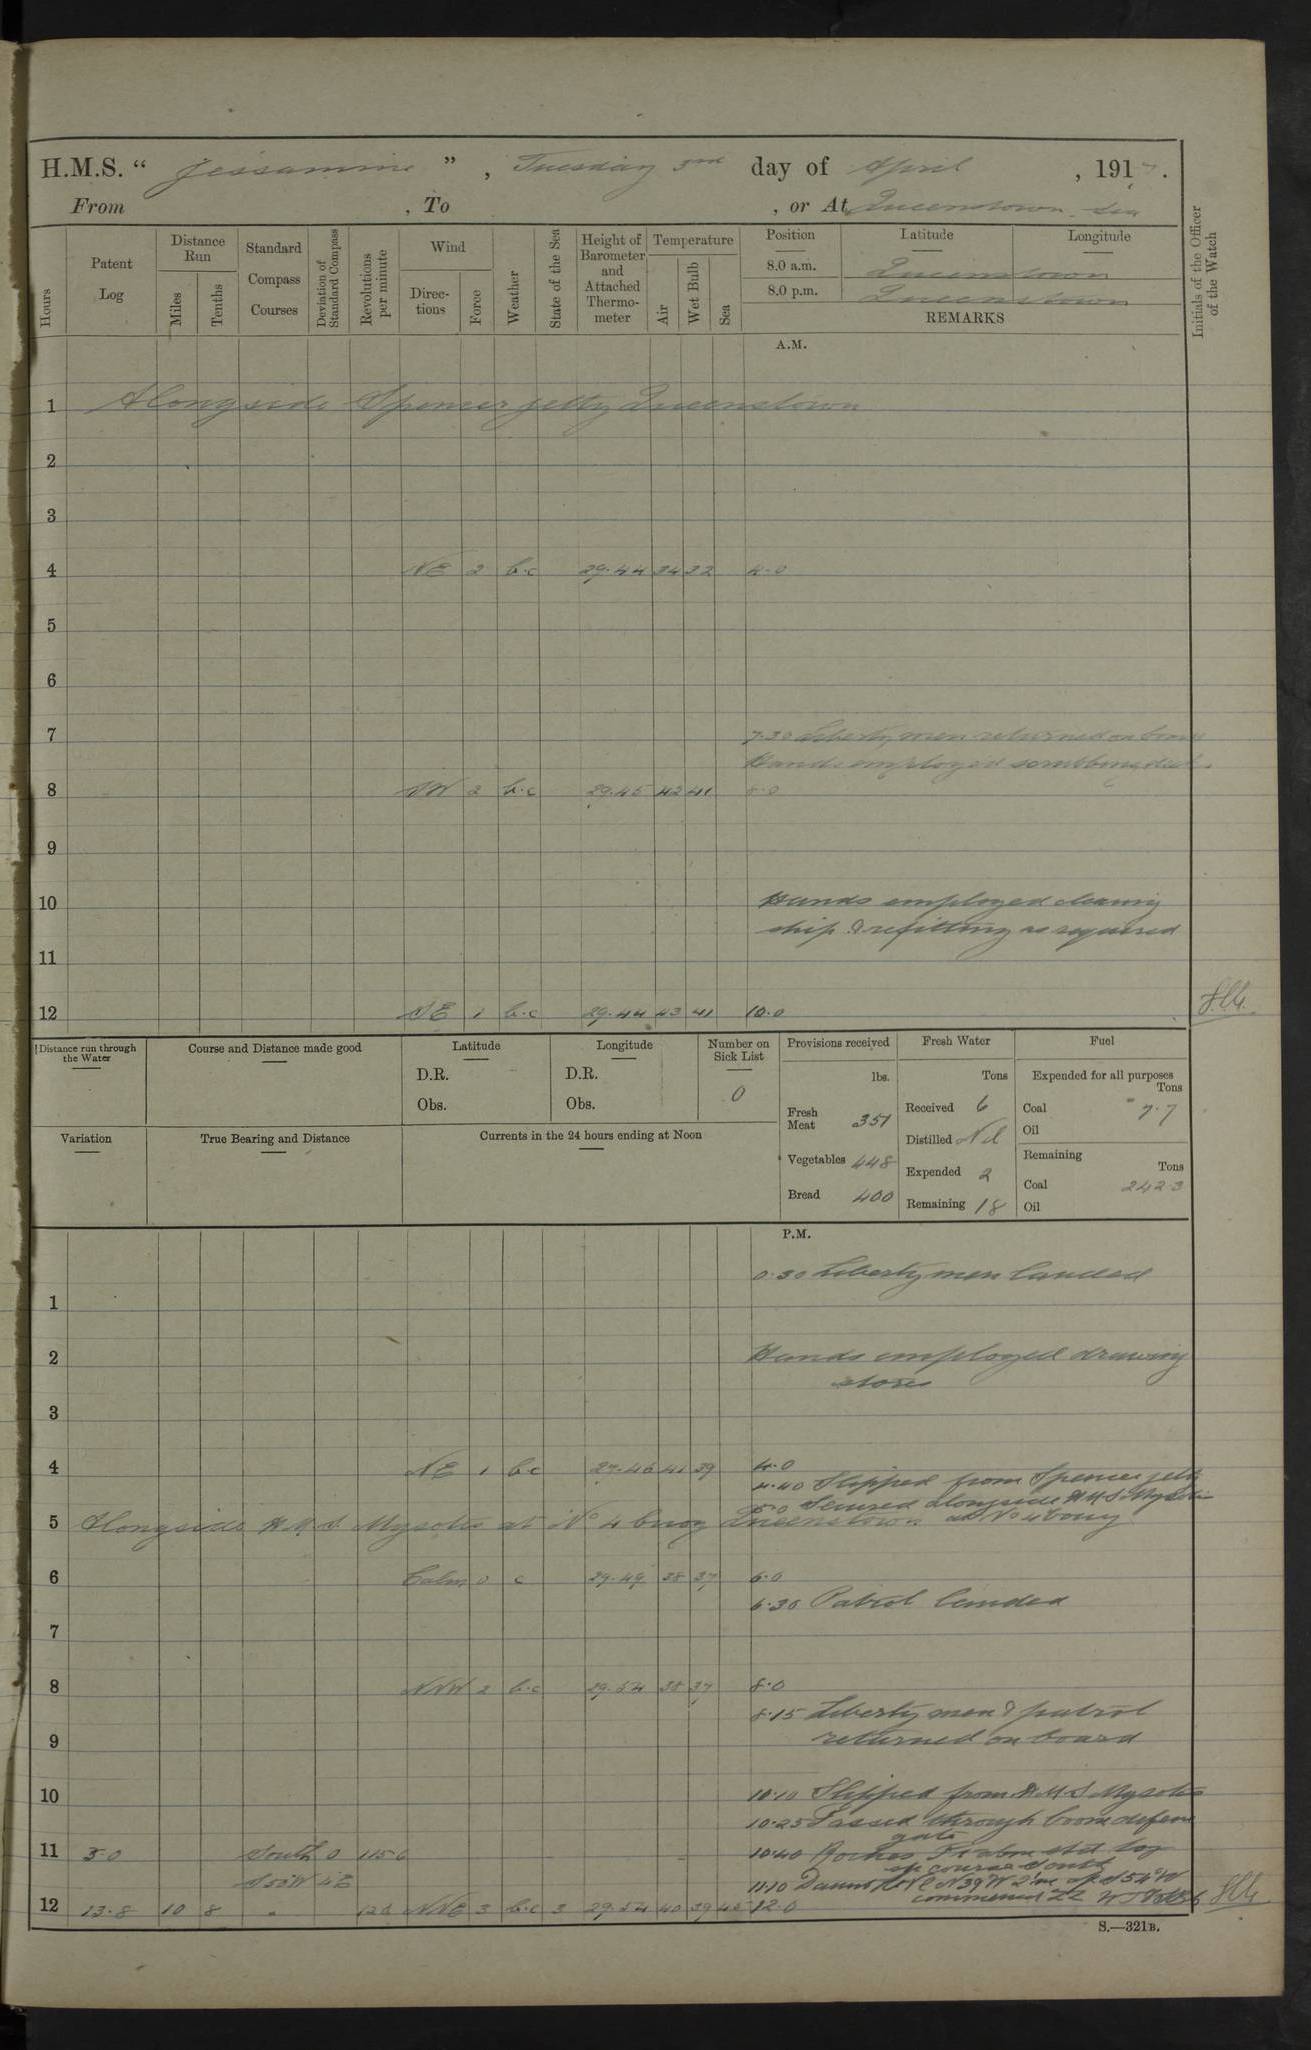 H.M.S. " Jessamine ", Tuesday 3rd day of April , 1917.
From , To , or At Queenstown
Hours
Patent Log
Distance Run
Miles
Tenths
Standard Compass Courses
Deviation of Standard Compass
Revolutions per minute
Wind
Direc-tions
Force
Weather
State of the Sea
Height of Barometer and Attached Thermo-meter
Temperature
Air
Wet Bulb
Sea
Position
Latitude
Longitude
8.0 a.m. Queenstown
8.0 p.m. Queenstown
REMARKS
Initials of the Officer of the Watch
A.M.
1 Alongside Spencer jetty Queenstown
2
3
4 NE 2 b.c 29.44 34 32 4.0
5
6
7 7.30 Liberty men returned on board
Hands employed scrubbing deck
8 2 b.c 29.45 42 41 8.0
9
10 Hands employed cleaning
ship & refitting as required
11
12 1 b.c 29.44 43 41
Distance run through the Water
Course and Distance made good
Latitude
D.R.
Obs.
Longitude
D.R.
Obs.
Number on Sick List
0
Provisions received
lbs.
Fresh Meat 351
Vegetables 448
Bread 400
Fresh Water
Tons
Received 6
Distilled Nil
Expended 2
Remaining 18
Fuel
Expended for all purposes
Tons
Coal 7.7
Oil
Remaining
Tons
Coal 242.3
Oil
Variation
True Bearing and Distance
Currents in the 24 hours ending at Noon
P.M.
0.30 Liberty men landed
1
2 Hands employed drawing
stores
3
4 NE 1 b.c 29.46 41 39 4.0
4.40 Slipped from Spencer jetty
5.0 Secured alongside H.M.S Mysotis
at No 4 bouy
5 Alongside H.M.S. Mysotis at No 4 buoy Queenstown
6 Calm 0 c 29.49 38 37 6.0
6.30 Patrol landed
7
8 NNW 2 b.c 29.54 38 37 8.0
8.15 Liberty men & patrol
returned on board
9
10 10.10 Slipped from H.M.S Mysotis
10.25 Passed through boom defence
gate
11 South 0 10.40 Roches Pt abm std log
on course South
11.10
commenced ZZ
12 13.8 10 8 " 126 NNE 3 b.c 3 29.54 40 39 45 12.0
S.—321B.